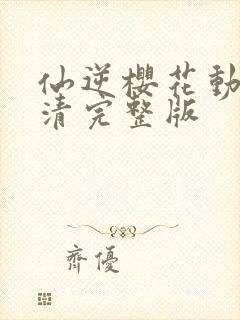 仙逆櫻花動
清完整版
齊優